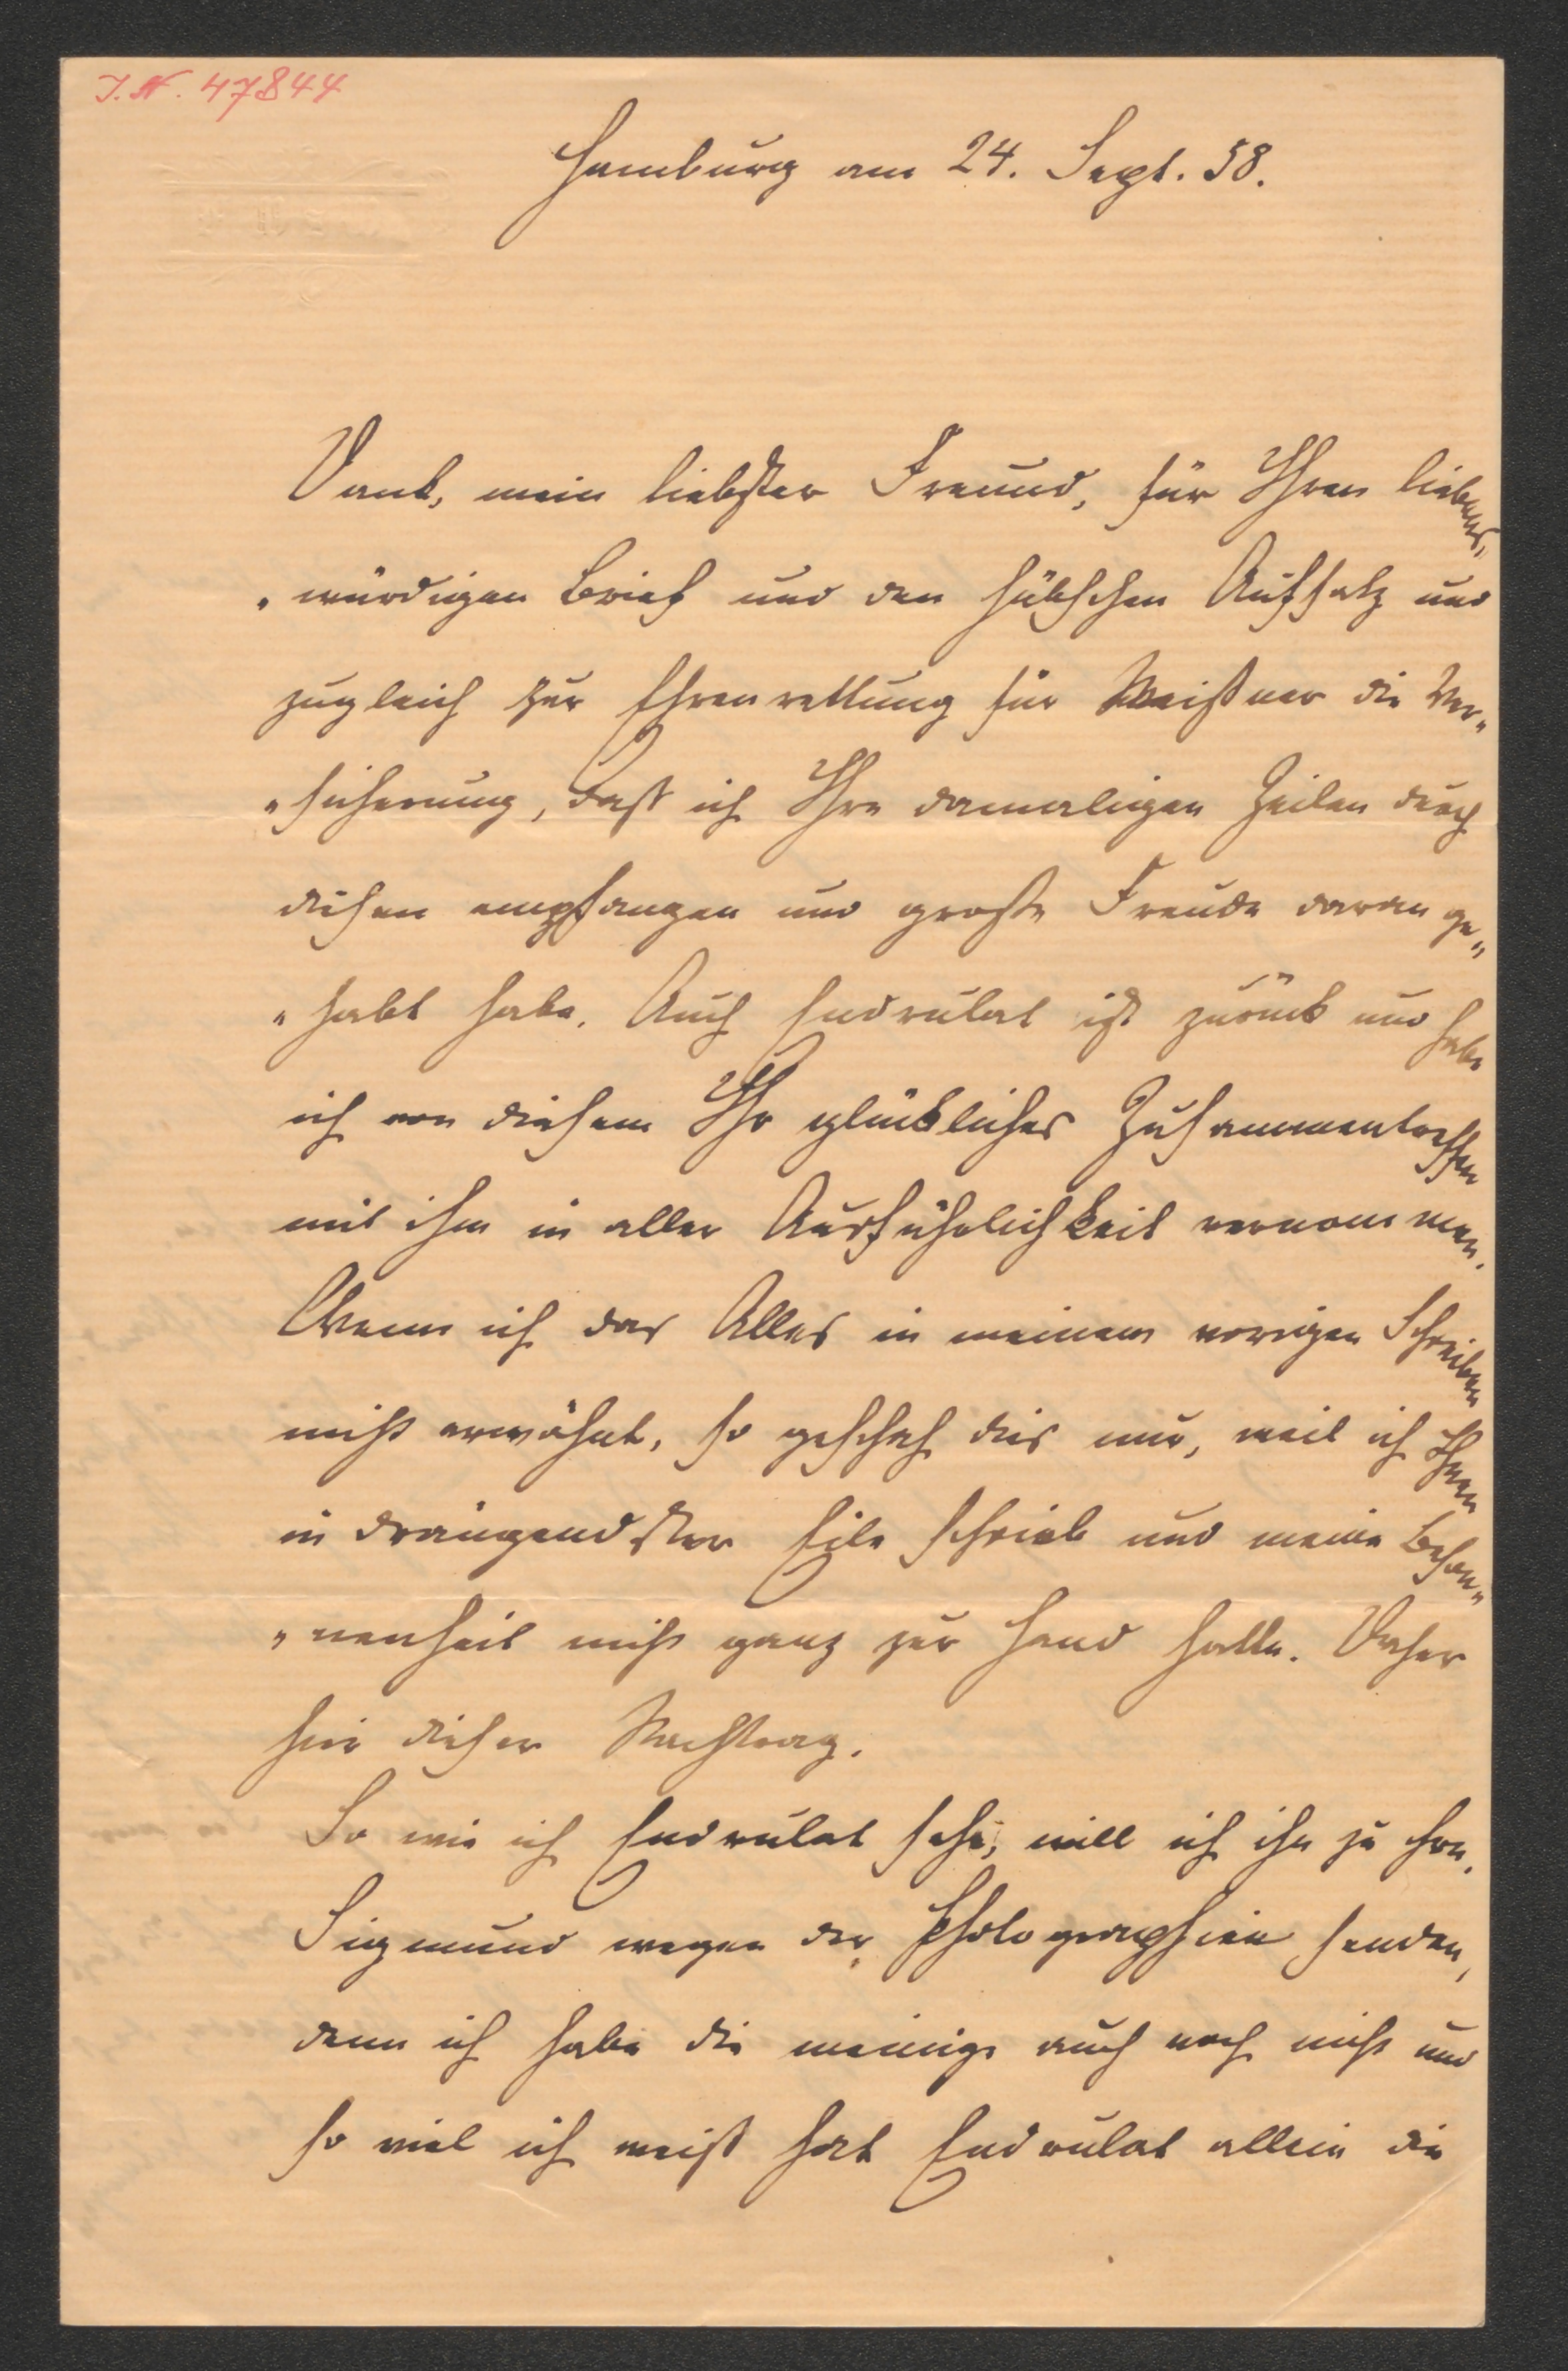 I.N. 47844
Hamburg am 24. Sept. 58.
Dank, mein liebster Freund, für Ihren liebens„
„würdigen Brief und den hübschen Aufsatz und
zugleich zur Ehrenrettung für Meißner die Ver„
„sicherung, daß ich Ihre damaligen Zeilen durch
diesen empfangen und große Freude daran ge„
„habt habe. Auch Endrulat ist zurück und habe
ich von diesem Ihr glückliches Zusammentreffen
mit ihm in aller Ausführlichkeit vernommen.
Wenn ich das Alles in meinem vorigen Schreiben
nicht erwähnt, so geschah dies nur, weil ich Ihnen
in drängendster Eile schrieb und meine Beson„
„nenheit nicht ganz zur Hand hatte. Daher
hier dieser Nachtrag.
So wie ich Endrulat sehe, will ich ihn zu Hrn.
Sigmund wegen der Photographien senden,
denn ich habe die meinige auch noch nicht und
so viel ich weiß hat Endrulat allein die